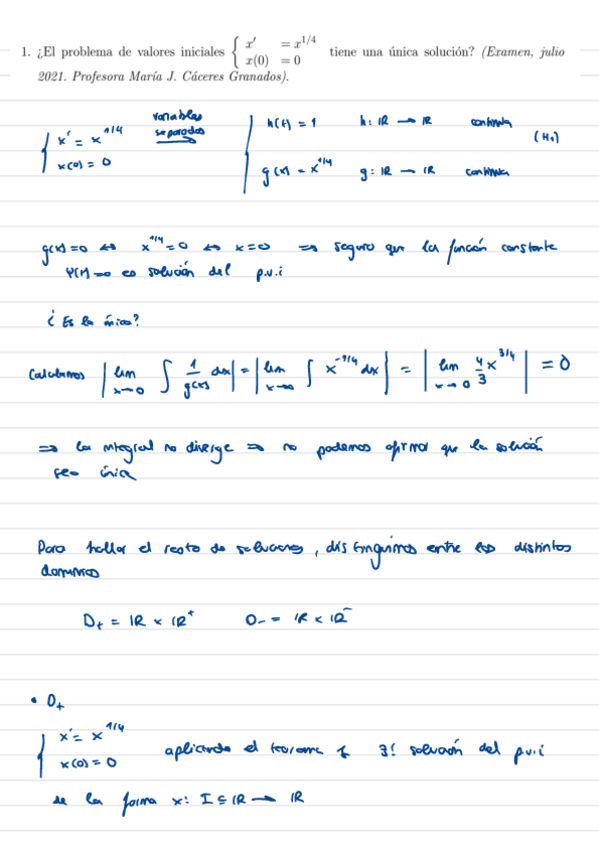 1. ¿El problema de valores iniciales { x′ = x^{1/4} tiene una única solución? (Examen, julio
x(0) = 0
2021. Profesora María J. Cáceres Granados).
{ x' = x^{1/4} variables separadas | h(t) = 1 h: IR → IR continua
x(0) = 0 | g(x) = x^{1/4} g: IR → IR continua (H₁)
g(x)=0 ⇔ x^{1/4}=0 ⇔ x=0 ⇒ seguro que la función constante
φ(t)=0 es solución del p.v.i
¿ Es la única?
Calculamos | lim_{x→0} ∫ 1/g(x) dx | = | lim_{x→0} ∫ x^{-1/4} dx | = | lim_{x→0} 4/3 x^{3/4} | = 0
⇒ la integral no diverge ⇒ no podemos afirmar que la solución
sea única
Para hallar el resto de soluciones, distinguimos entre los distintos
dominios
D₊ = IR × IR⁺ D₋ = IR × IR⁻
• D₊
{ x' = x^{1/4} aplicando el teorema 1 ∃! solución del p.v.i
x(0) = 0
de la forma x: I ⊆ IR → IR